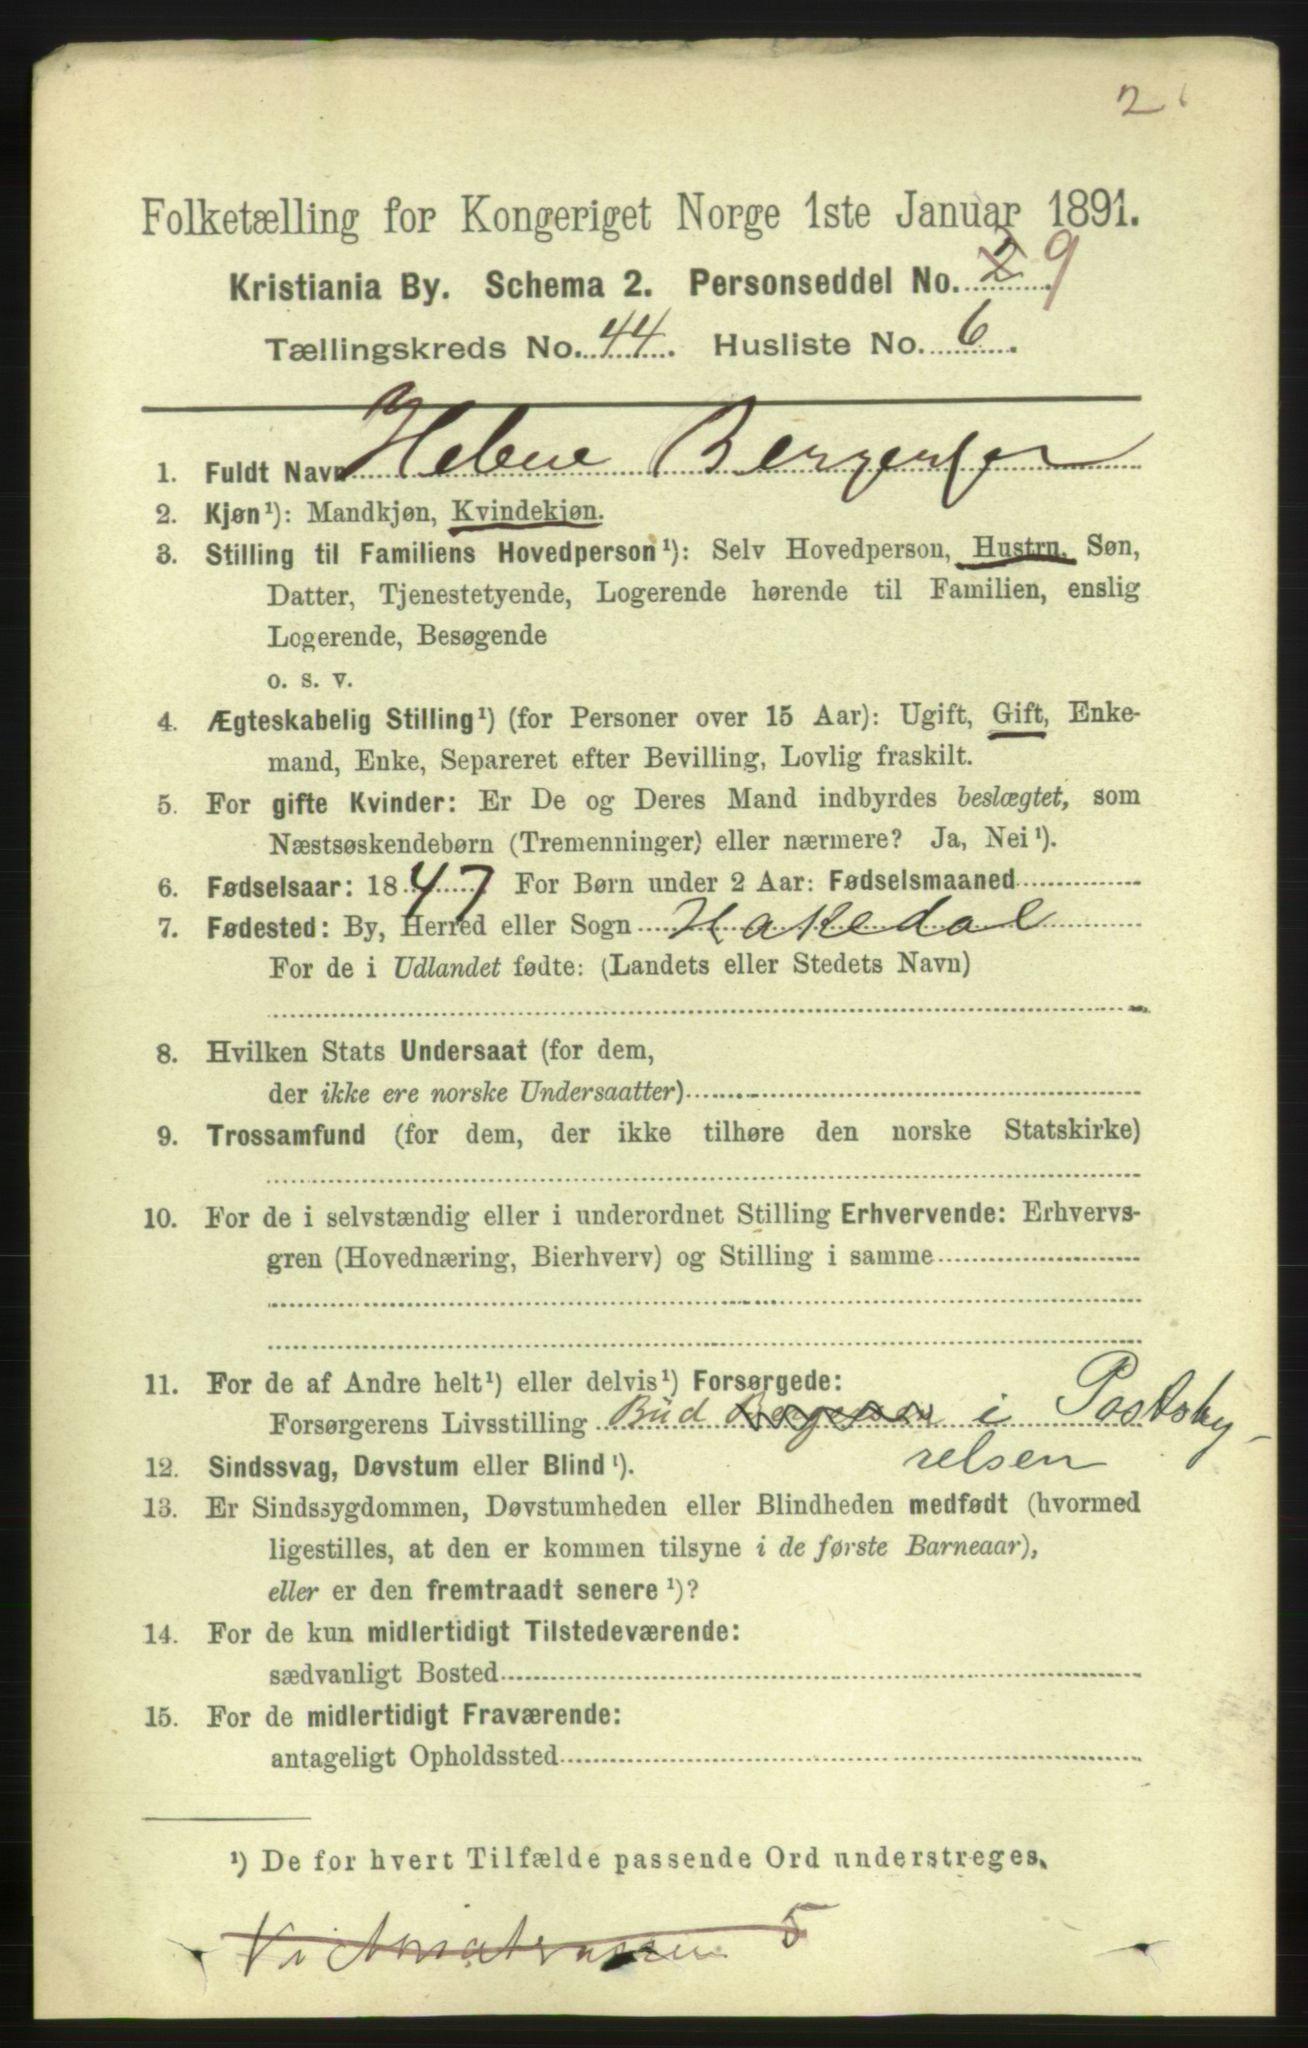 2
Folketælling for Kongeriget Norge 1ste Januar 1891.
Kristiania By. Schema 2. Personseddel No. 2 9
Tællingskreds No. 44. Husliste No. 6.
1. Fuldt Navn Helene Bergersen
2. Kjøn¹): Mandkjøn, Kvindekjøn.
3. Stilling til Familiens Hovedperson¹): Selv Hovedperson, Hustru, Søn,
Datter, Tjenestetyende, Logerende hørende til Familien, enslig
Logerende, Besøgende
o. s. v.
4. Ægteskabelig Stilling¹) (for Personer over 15 Aar): Ugift, Gift, Enke-
mand, Enke, Separeret efter Bevilling, Lovlig fraskilt.
5. For gifte Kvinder: Er De og Deres Mand indbyrdes beslægtet, som
Næstsøskendebørn (Tremenninger) eller nærmere? Ja, Nei¹).
6. Fødselsaar: 1847 For Børn under 2 Aar: Fødselsmaaned
7. Fødested: By, Herred eller Sogn Hakedal
For de i Udlandet fødte: (Landets eller Stedets Navn)
8. Hvilken Stats Undersaat (for dem,
der ikke ere norske Undersaatter)
9. Trossamfund (for dem, der ikke tilhøre den norske Statskirke)
10. For de i selvstændig eller i underordnet Stilling Erhvervende: Erhvervs-
gren (Hovednæring, Bierhverv) og Stilling i samme
11. For de af Andre helt¹) eller delvis¹) Forsørgede:
Forsørgerens Livsstilling Bud Bergersen i Postsby-
relsen
12. Sindssvag, Døvstum eller Blind¹).
13. Er Sindssygdommen, Døvstumheden eller Blindheden medfødt (hvormed
ligestilles, at den er kommen tilsyne i de første Barneaar),
eller er den fremtraadt senere¹)?
14. For de kun midlertidigt Tilstedeværende:
sædvanligt Bosted
15. For de midlertidigt Fraværende:
antageligt Opholdssted
¹) De for hvert Tilfælde passende Ord understreges.
Victoriaterassen 5